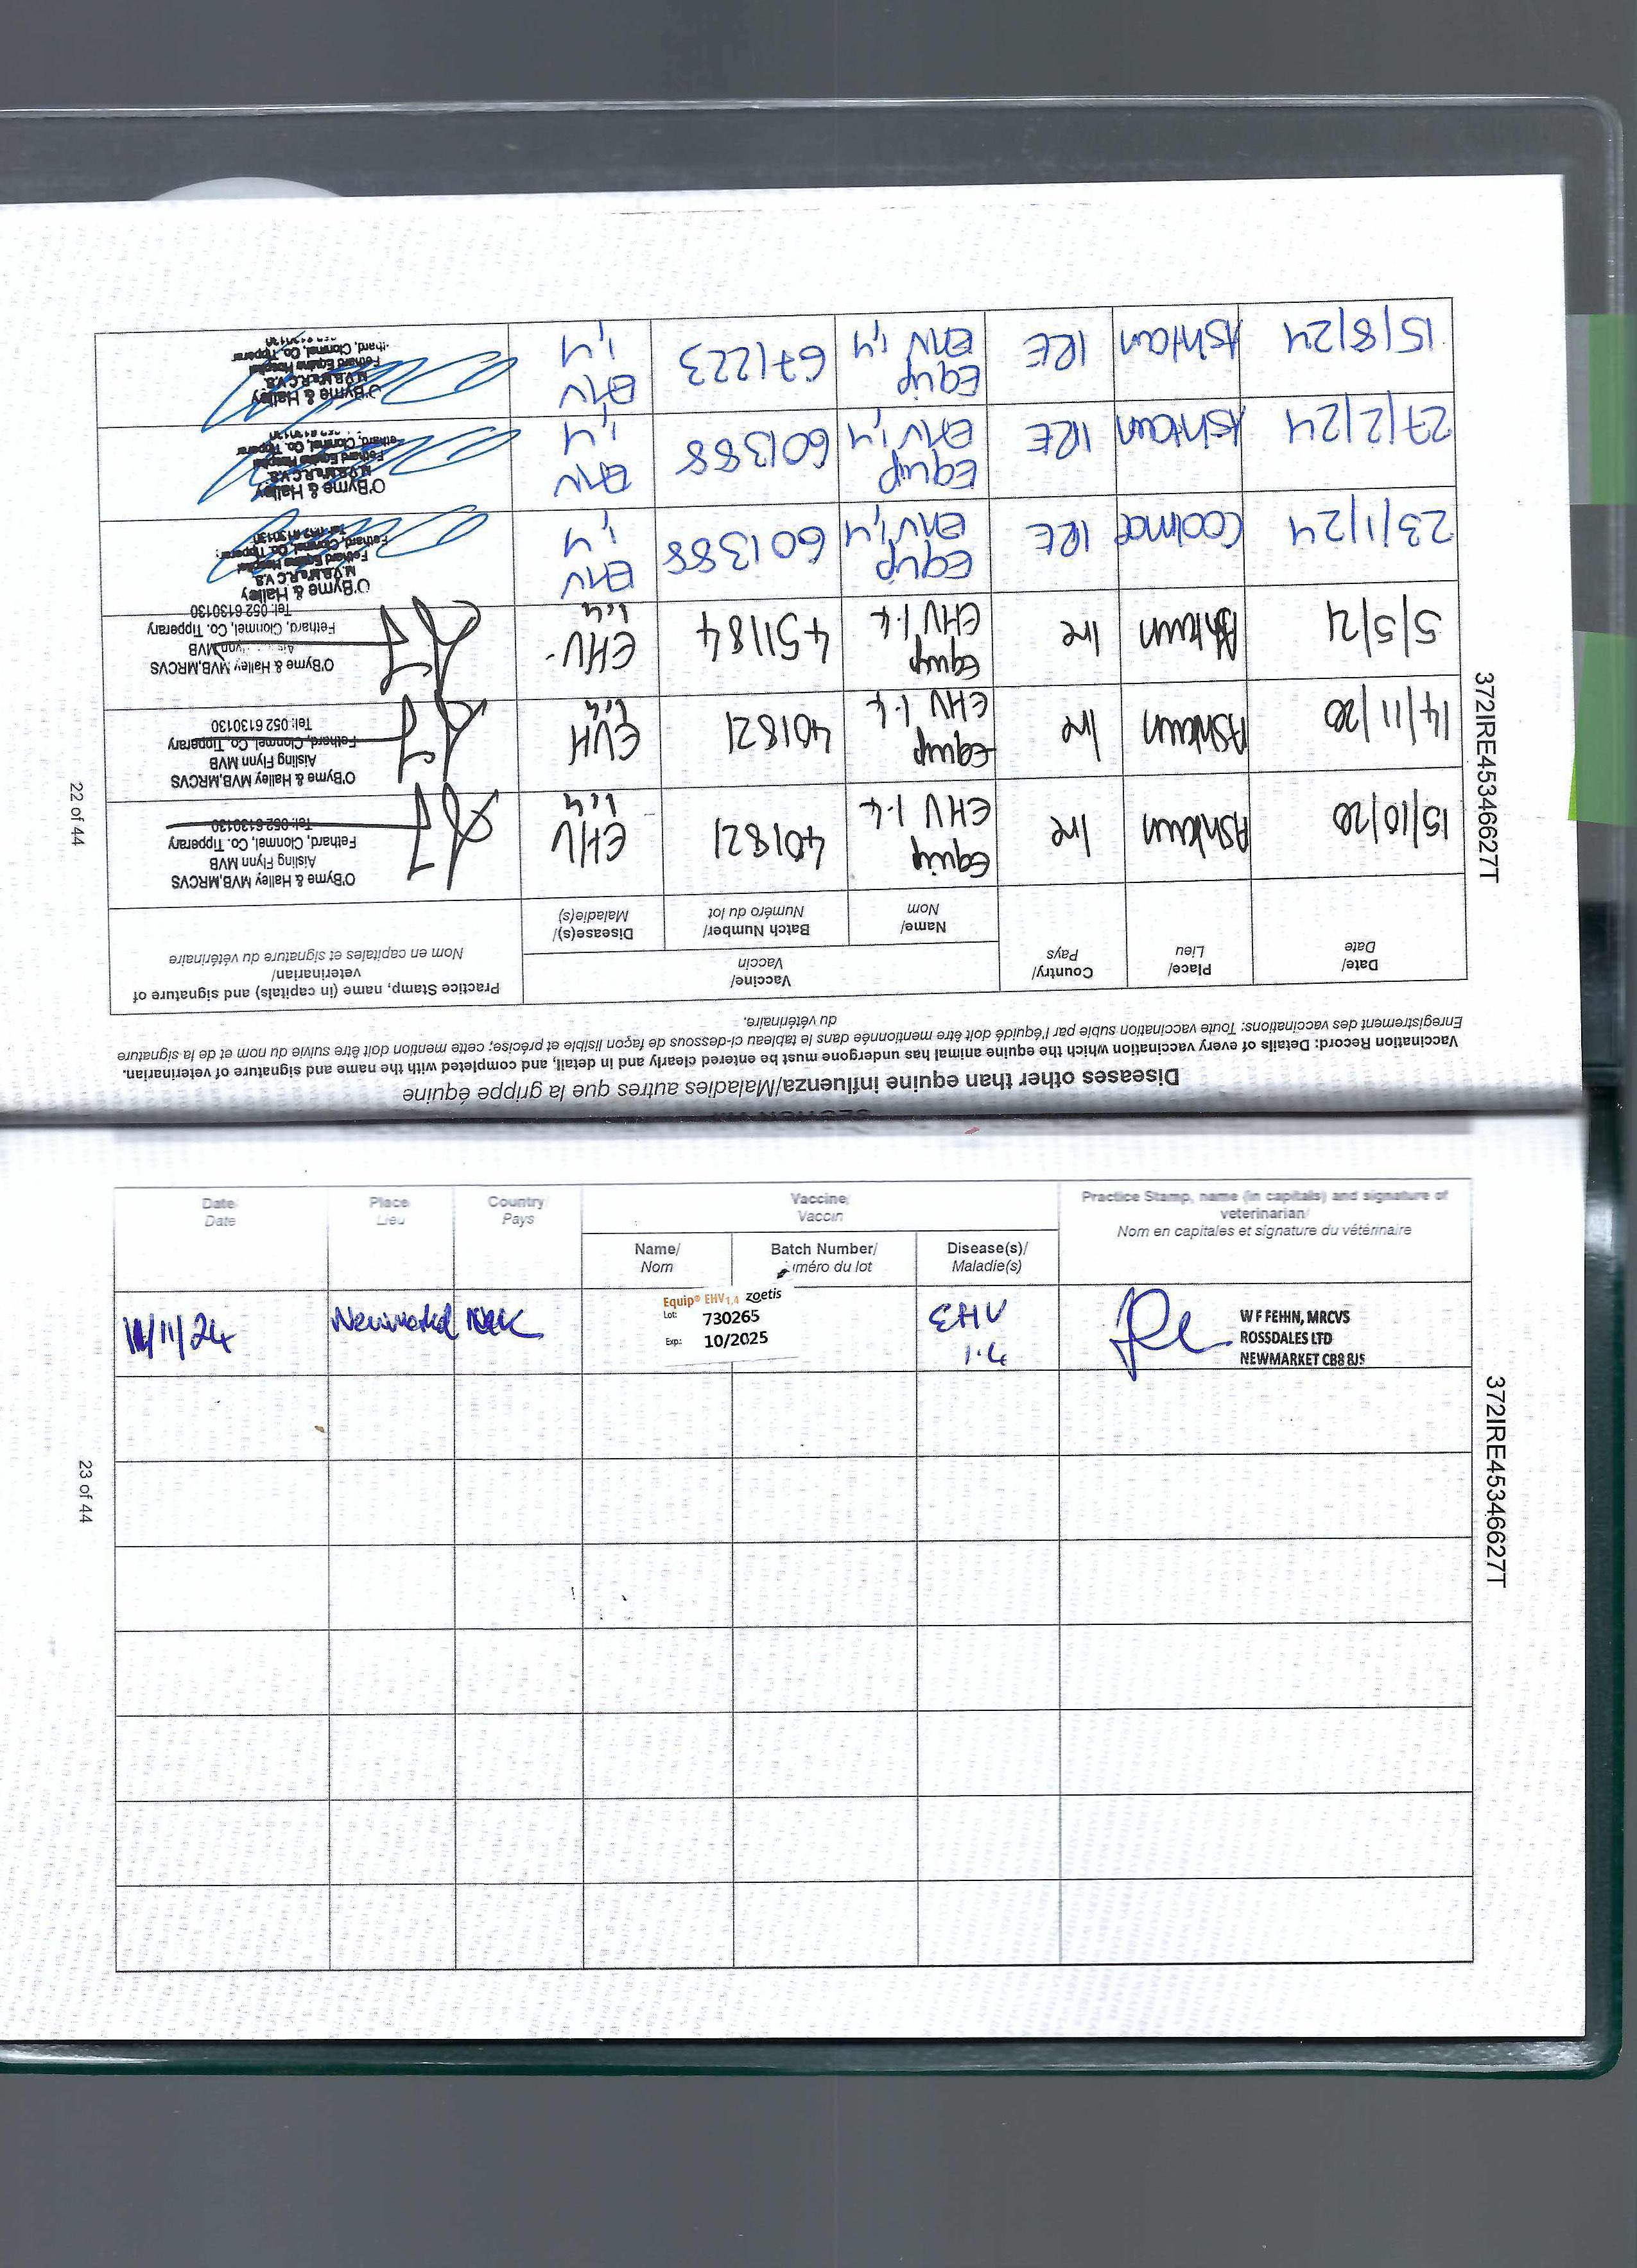 Diseases other than equine influenza/Maladies autres que la grippe équine
Vaccination Record: Details of every vaccination which the equine animal has undergone must be entered clearly and in detail, and completed with the name and signature of veterinarian.
Enregistrement des vaccinations: Toute vaccination subie par l'équidé doit être mentionnée dans le tableau ci-dessous de façon lisible et précise; cette mention doit être suivie du nom et de la signature
du vétérinaire.
Date/ Date
Place/ Lieu
Country/ Pays
Vaccine/ Vaccin
Name/ Nom
Batch Number/ Numéro du lot
Disease(s)/ Maladie(s)
Practice Stamp, name (in capitals) and signature of
veterinarian/
Nom en capitales et signature du vétérinaire
15/10/20 Ashtown Ire Equip EHV 1.4 401821 EHV 1.4
O'Byrne & Halley MVB,MRCVS
Aisling Flynn MVB
Fethard, Clonmel, Co. Tipperary
Tel: 052 6130130
14/11/20 Ashtown Ire Equip EHV 1.4 401821 EVH 1.4
O'Byrne & Halley MVB,MRCVS
Aisling Flynn MVB
Fethard, Clonmel, Co. Tipperary
Tel: 052 6130130
5/5/21 Ashtown Ire Equip EHV 1.4 451184 EHV- 1.4
O'Byrne & Halley MVB,MRCVS
Flynn MVB
Fethard, Clonmel, Co. Tipperary
Tel: 052 6130130
23/1/24 IRE Equip EHV 1,4 601388 EHV 1,4
O'Byrne & Halley
M.V.B.M's.R.C.V.S.
Fethard Equine Hospital
Fethard, Clonmel, Co. Tipperar
27/2/24 Ashtown IRE Equip EHV 1,4 601388 EHV 1,4
O'Byrne & Halley
M.V.B.M's.R.C.V.S.
Fethard Equine Hospital
ethard, Clonmel, Co. Tipperar
15/8/24 Ashtown IRE Equip EHV 1,4 671223 EHV 1,4
O'Byrne & Halley
M.V.B.M's.R.C.V.S.
Fethard Equine Hospital
thard, Clonmel, Co. Tipperar
372IRE45346627T
22 of 44
Date/ Date
Place/ Lieu
Country/ Pays
Vaccine/ Vaccin
Name/ Nom
Batch Number/ uméro du lot
Disease(s)/ Maladie(s)
Practice Stamp, name (in capitals) and signature of
veterinarian/
Nom en capitales et signature du vétérinaire
11/11/24 Newmarket UK
Equip® EHV1,4 zoetis
Lot: 730265
Exp.: 10/2025
EHV
1.4
W F FEHIN, MRCVS
ROSSDALES LTD
NEWMARKET CB8 8JS
372IRE45346627T
23 of 44